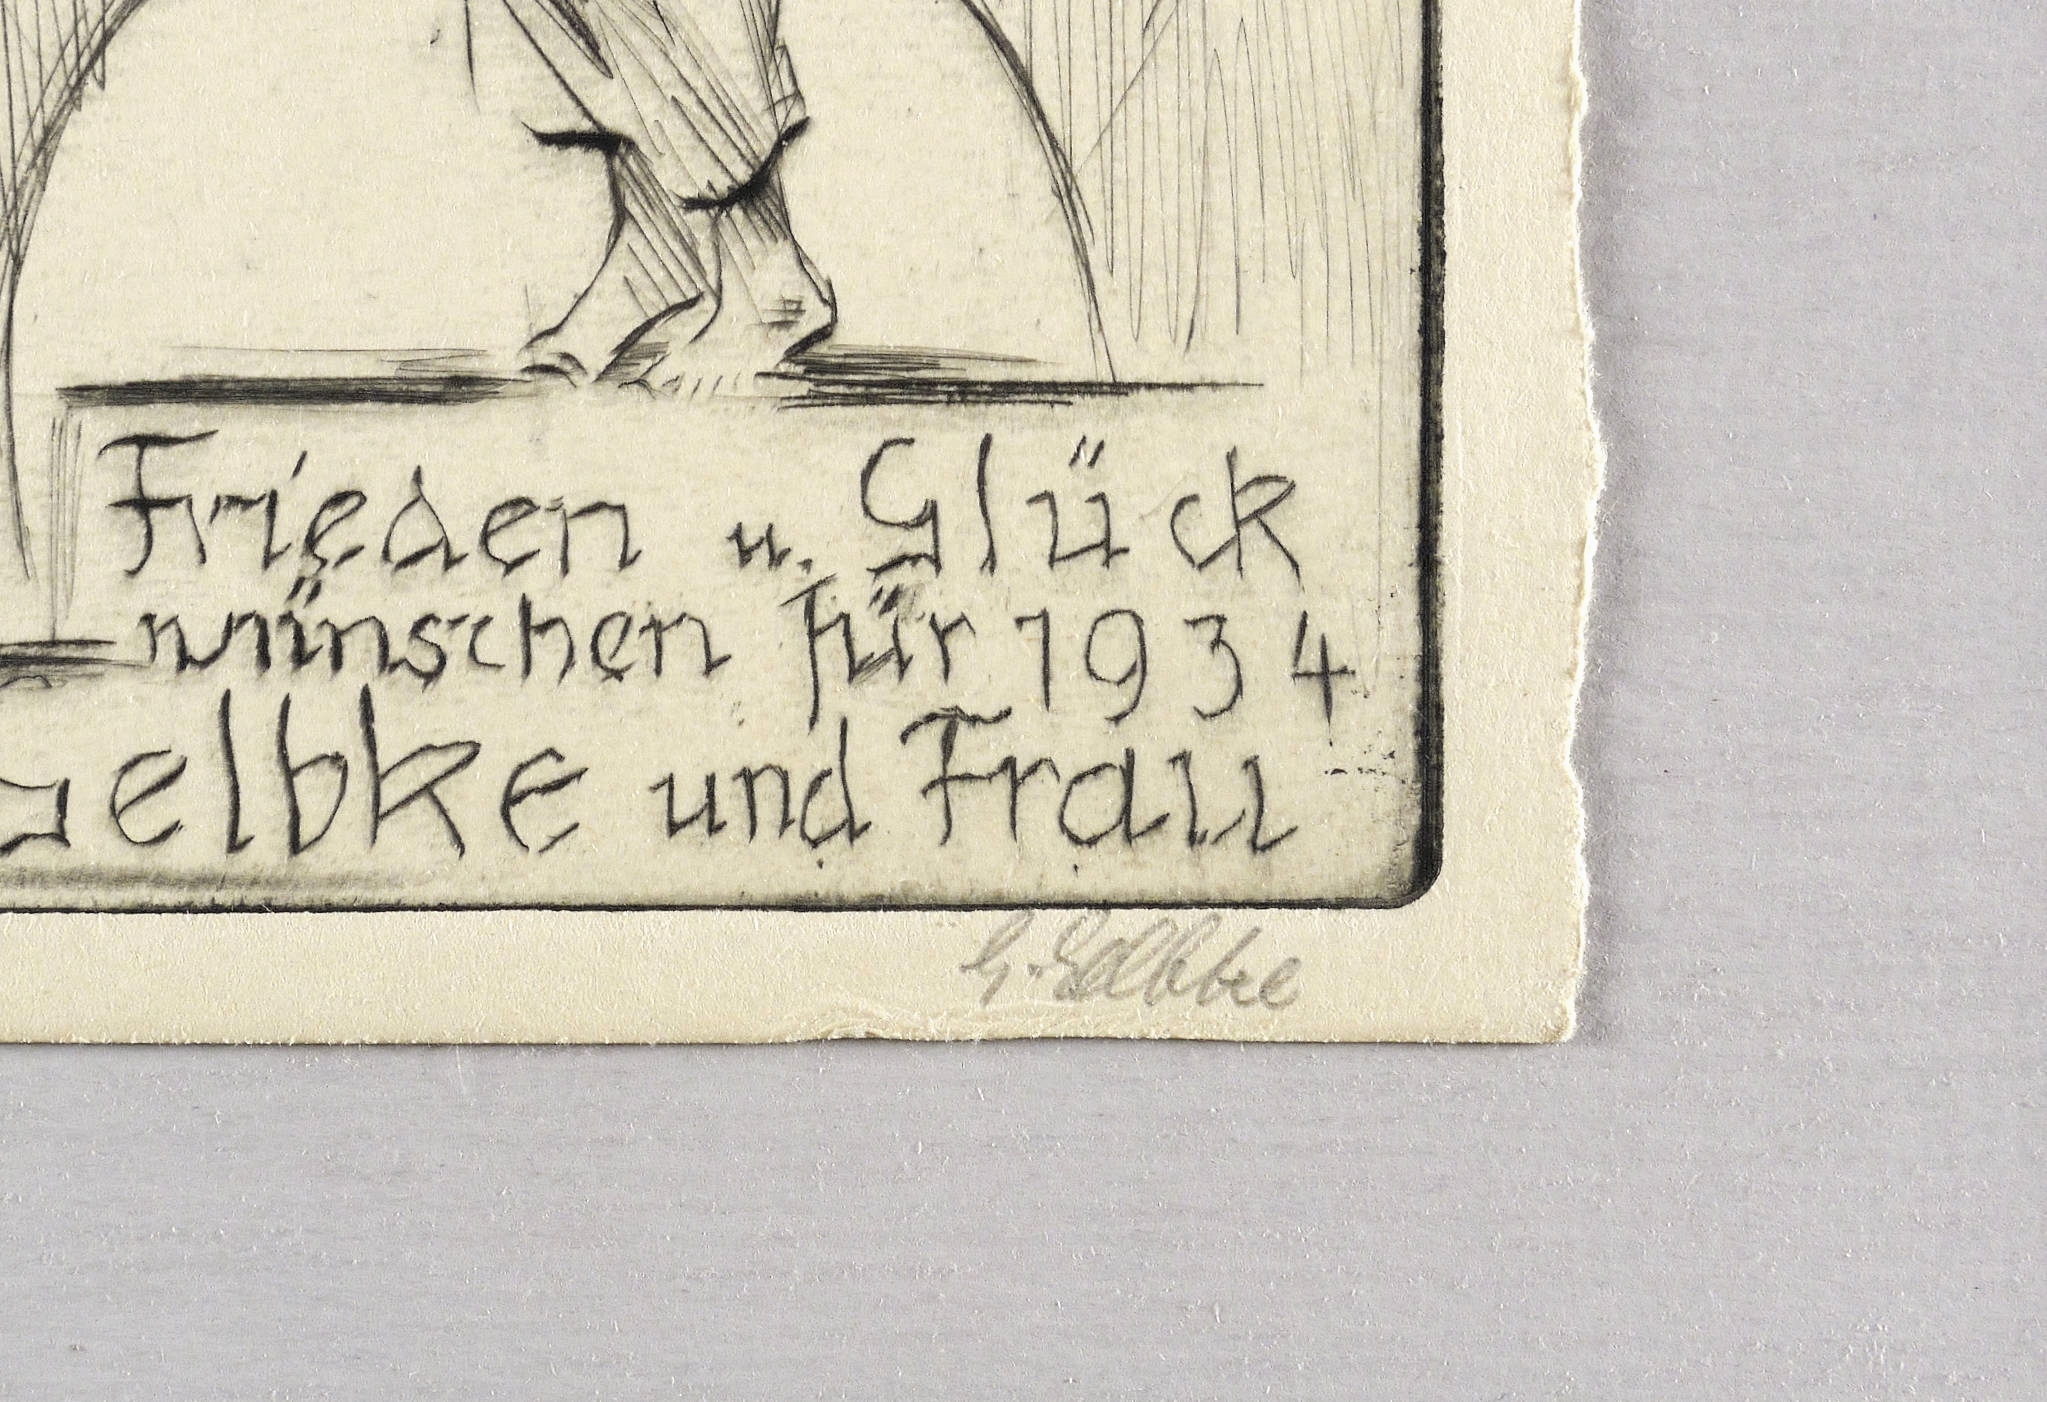 Frieden u. Glück
wünschen für 1934
Gelbke und Frau
G. Gelbke